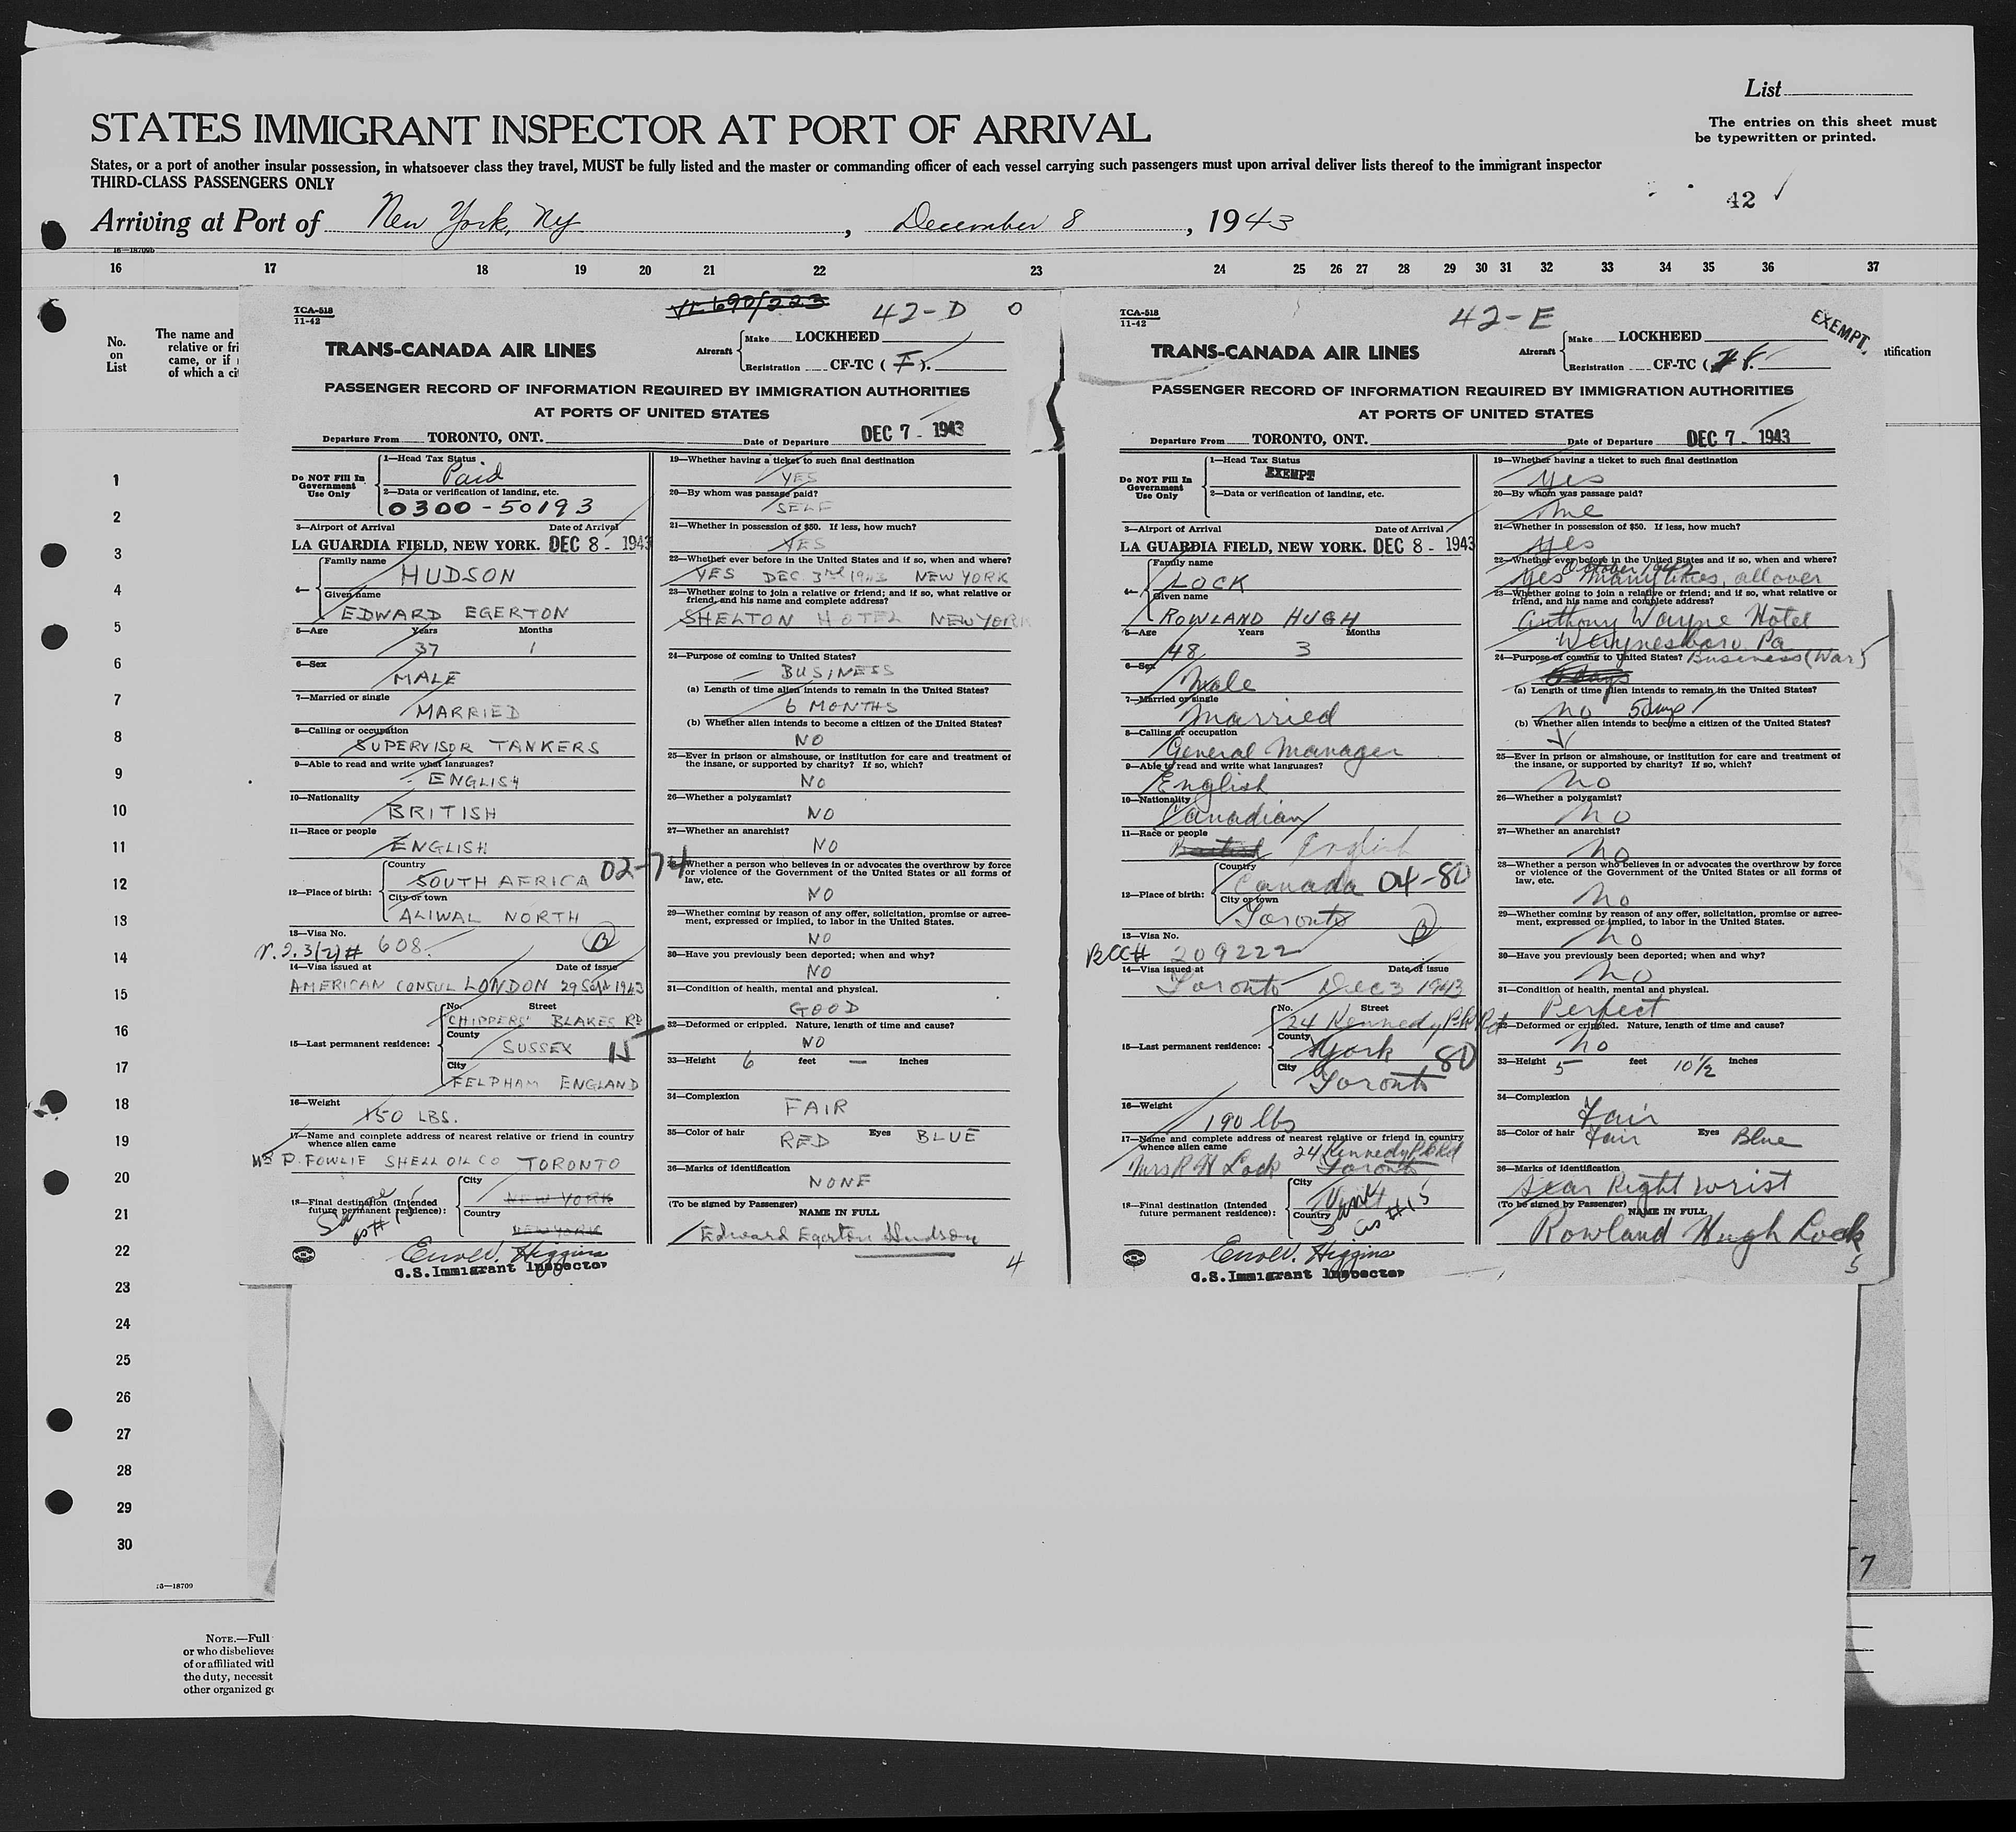 List
The entries on this sheet must
be typewritten or printed.
STATES IMMIGRANT INSPECTOR AT PORT OF ARRIVAL
States, or a port of another insular possession, in whatsoever class they travel, MUST be fully listed and the master or commanding officer of each vessel carrying such passengers must upon arrival deliver lists thereof to the immigrant inspector
THIRD-CLASS PASSENGERS ONLY
42
Arriving at Port of New York, NY, December 8, 1943
16—18709b
16 17 18 19 20 21 22 23 24 25 26 27 28 29 30 31 32 33 34 35 36 37
No.
on
List
The name and
relative or fri
came, or if
of which a cit
ntification
1
2
3
4
5
6
7
8
9
10
11
12
13
14
15
16
17
18
19
20
21
22
23
24
25
26
27
28
29
30
16—18709
NOTE.—Full
or who disbelieves
of or affiliated with
the duty, necessit
other organized go
7
TCA-518
11-42
VL 690/223
42-D
0
TRANS-CANADA AIR LINES
Aircraft
Make LOCKHEED
Registration CF-TC ( I ).
PASSENGER RECORD OF INFORMATION REQUIRED BY IMMIGRATION AUTHORITIES
AT PORTS OF UNITED STATES
Departure From TORONTO, ONT. Date of Departure DEC 7 - 1943
Do NOT Fill In
Government
Use Only
1—Head Tax Status
Paid
2—Data or verification of landing, etc.
0300-50193
3—Airport of Arrival Date of Arrival
LA GUARDIA FIELD, NEW YORK. DEC 8 - 1943
4—
Family name
HUDSON
Given name
EDWARD EGERTON
5—Age Years Months
37 1
6—Sex
MALE
7—Married or single
MARRIED
8—Calling or occupation
SUPERVISOR TANKERS
9—Able to read and write what languages?
ENGLISH
10—Nationality
BRITISH
11—Race or people
ENGLISH
12—Place of birth:
Country
SOUTH AFRICA 02-74
City or town
ALIWAL NORTH
13—Visa No.
V. 2. 3(2)# 608. B
14—Visa issued at Date of issue
AMERICAN CONSUL LONDON 29 Sept 1943
15—Last permanent residence:
No. Street
CHIPPERS' BLAKES RD
County
SUSSEX 15
City
FELPHAM ENGLAND
16—Weight
150 LBS.
17—Name and complete address of nearest relative or friend in country
whence alien came
MR P. FOWLIE SHELL OIL CO TORONTO
18—Final destination (Intended
future permanent residence):
City
NEW YORK
Country
NEW YORK
Same
as # 15
Errol V. Higgins
U.S. Immigrant Inspector
19—Whether having a ticket to such final destination
YES
20—By whom was passage paid?
SELF
21—Whether in possession of $50. If less, how much?
YES
22—Whether ever before in the United States and if so, when and where?
YES DEC. 3rd 1943 NEW YORK
23—Whether going to join a relative or friend; and if so, what relative or
friend, and his name and complete address?
SHELTON HOTEL NEW YORK
24—Purpose of coming to United States?
BUSINESS
(a) Length of time alien intends to remain in the United States?
6 MONTHS
(b) Whether alien intends to become a citizen of the United States?
NO
25—Ever in prison or almshouse, or institution for care and treatment of
the insane, or supported by charity? If so, which?
NO
26—Whether a polygamist?
NO
27—Whether an anarchist?
NO
28—Whether a person who believes in or advocates the overthrow by force
or violence of the Government of the United States or all forms of
law, etc.
NO
29—Whether coming by reason of any offer, solicitation, promise or agree-
ment, expressed or implied, to labor in the United States.
NO
30—Have you previously been deported; when and why?
NO
31—Condition of health, mental and physical.
GOOD
32—Deformed or crippled. Nature, length of time and cause?
NO
33—Height 6 feet — inches
34—Complexion
FAIR
35—Color of hair RED Eyes BLUE
36—Marks of identification
NONE
(To be signed by Passenger)
NAME IN FULL
Edward Egerton Hudson
4
TCA-518
11-42
42-E
EXEMPT.
TRANS-CANADA AIR LINES
Aircraft
Make LOCKHEED
Registration CF-TC (
PASSENGER RECORD OF INFORMATION REQUIRED BY IMMIGRATION AUTHORITIES
AT PORTS OF UNITED STATES
Departure From TORONTO, ONT. Date of Departure DEC 7 - 1943
Do NOT Fill In
Government
Use Only
1—Head Tax Status
EXEMPT
2—Data or verification of landing, etc.
3—Airport of Arrival Date of Arrival
LA GUARDIA FIELD, NEW YORK. DEC 8 - 1943
4—
Family name
LOCK
Given name
ROWLAND HUGH
5—Age Years Months
48 3
6—Sex
Male
7—Married or single
Married
8—Calling or occupation
General Manager
9—Able to read and write what languages?
English
10—Nationality
Canadian
11—Race or people
British English
12—Place of birth:
Country
Canada 04-80
City or town
Toronto
13—Visa No.
BCC# 209222 B
14—Visa issued at Date of issue
Toronto Dec 3 1943
15—Last permanent residence:
No. Street
24 Kennedy Pk Rd
County
York 80
City
Toronto
16—Weight
190 lbs
17—Name and complete address of nearest relative or friend in country
whence alien came
24 Kennedy Pk Rd
Mrs R H Lock Toronto
18—Final destination (Intended
future permanent residence):
City
Country
Same
as #15
Errol V. Higgins
U.S. Immigrant Inspector
19—Whether having a ticket to such final destination
Yes
20—By whom was passage paid?
me
21—Whether in possession of $50. If less, how much?
Yes
22—Whether ever before in the United States and if so, when and where?
October 1942
Yes many times, all over
23—Whether going to join a relative or friend; and if so, what relative or
friend, and his name and complete address?
Anthony Wayne Hotel
Waynesboro Pa
24—Purpose of coming to United States? Business (War)
5 days
(a) Length of time alien intends to remain in the United States?
no 5 days
(b) Whether alien intends to become a citizen of the United States?
25—Ever in prison or almshouse, or institution for care and treatment of
the insane, or supported by charity? If so, which?
no
26—Whether a polygamist?
no
27—Whether an anarchist?
no
28—Whether a person who believes in or advocates the overthrow by force
or violence of the Government of the United States or all forms of
law, etc.
no
29—Whether coming by reason of any offer, solicitation, promise or agree-
ment, expressed or implied, to labor in the United States.
no
30—Have you previously been deported; when and why?
no
31—Condition of health, mental and physical.
Perfect
32—Deformed or crippled. Nature, length of time and cause?
no
33—Height 5 feet 10 1/2 inches
34—Complexion
Fair
35—Color of hair Fair Eyes Blue
36—Marks of identification
Scar Right Wrist
(To be signed by Passenger)
NAME IN FULL
Rowland Hugh Lock
5